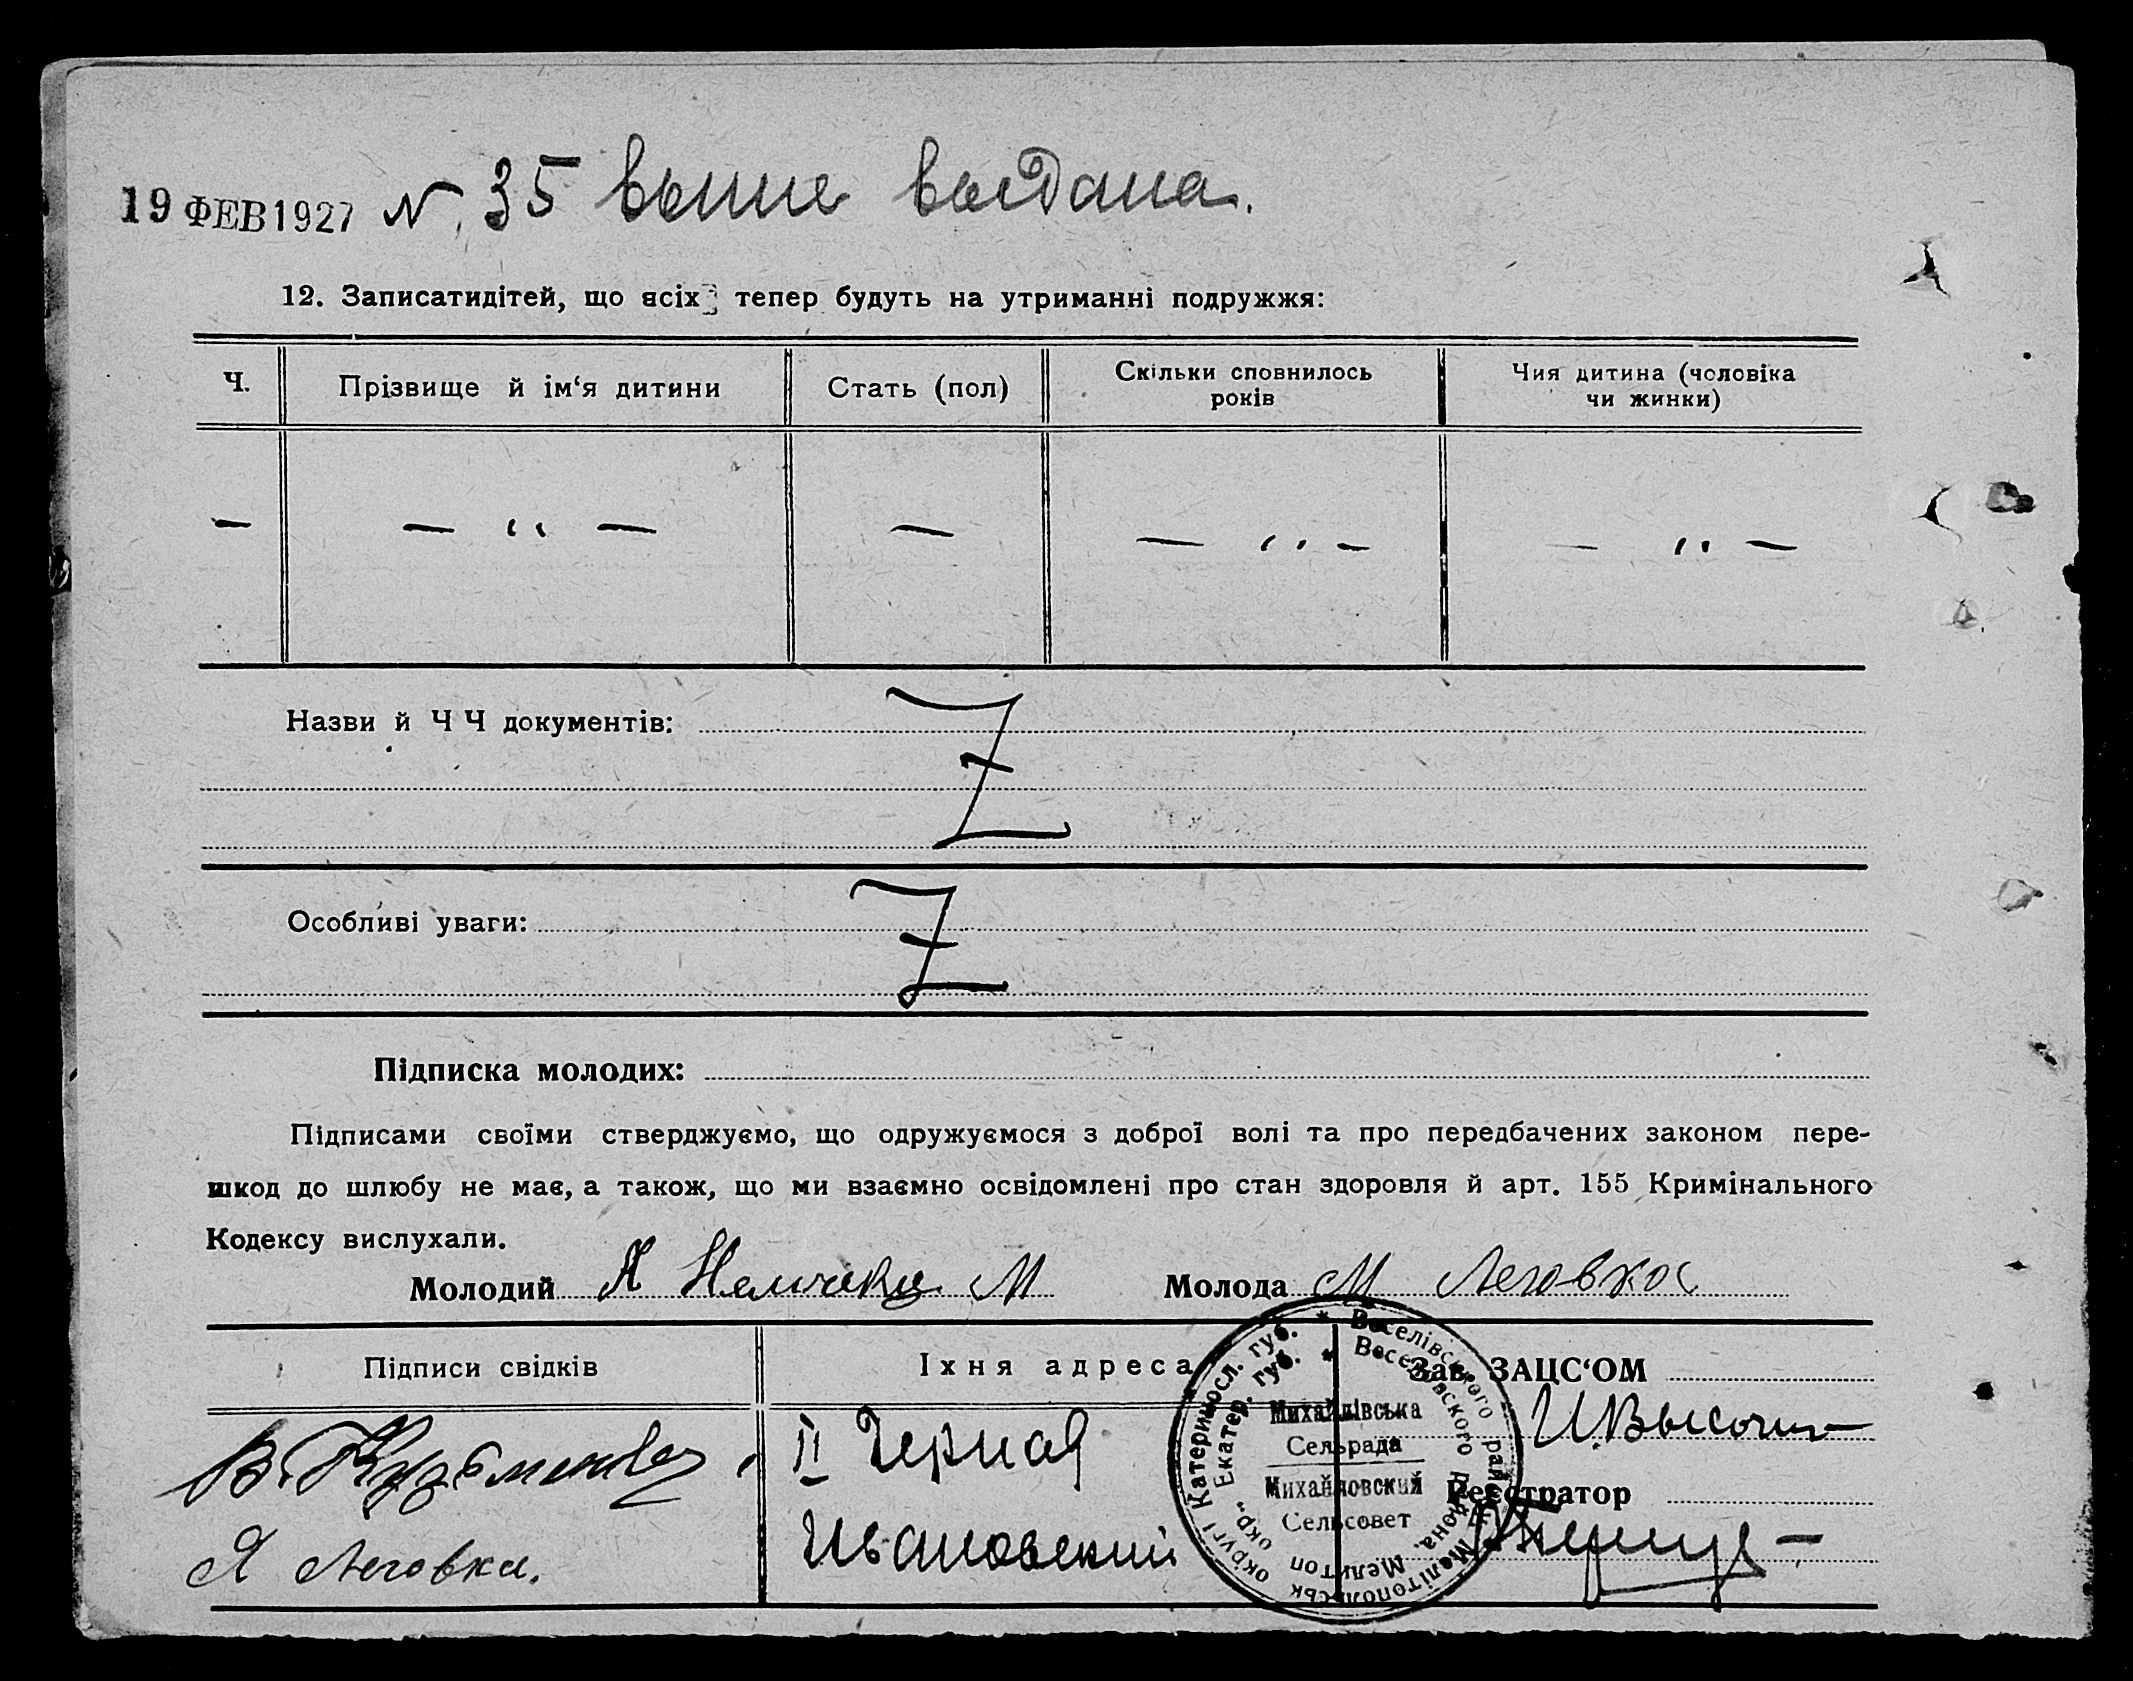 19 ФЕВ 1927 N 35 выпис выдана.
12. Записатидітей, що всіх тепер будуть на утриманні подружжя:
Ч. Прізвище й ім‘я дитини Стать (пол) Скільки сповнилось років Чия дитина (чоловіка чи жинки)
— — " — — — " — — " —
Назви й Ч Ч документів: Z
Особливі уваги: Z
Підписка молодих:
Підписами своїми стверджуємо, що одружуємося з доброї волі та про передбачених законом пере-
шкод до шлюбу не має, а також, що ми взаємно освідомлені про стан здоровля й арт. 155 Кримінального
Кодексу вислухали.
Молодий М Молода М Леговкос
Підписи свідків Їхня адреса Зав. ЗАЦС‘ОМ
В. Кузьменко II Черная И. Высочин
Реєстратор
Я Леговка. Ивановский
* Веселівського району Мелітопольськ округі Катериносл. губ.
* Веселовского района, Мелитоп окр. Екатер. губ.
Михайлівська
Сельрада
Михайловский
Сельсовет